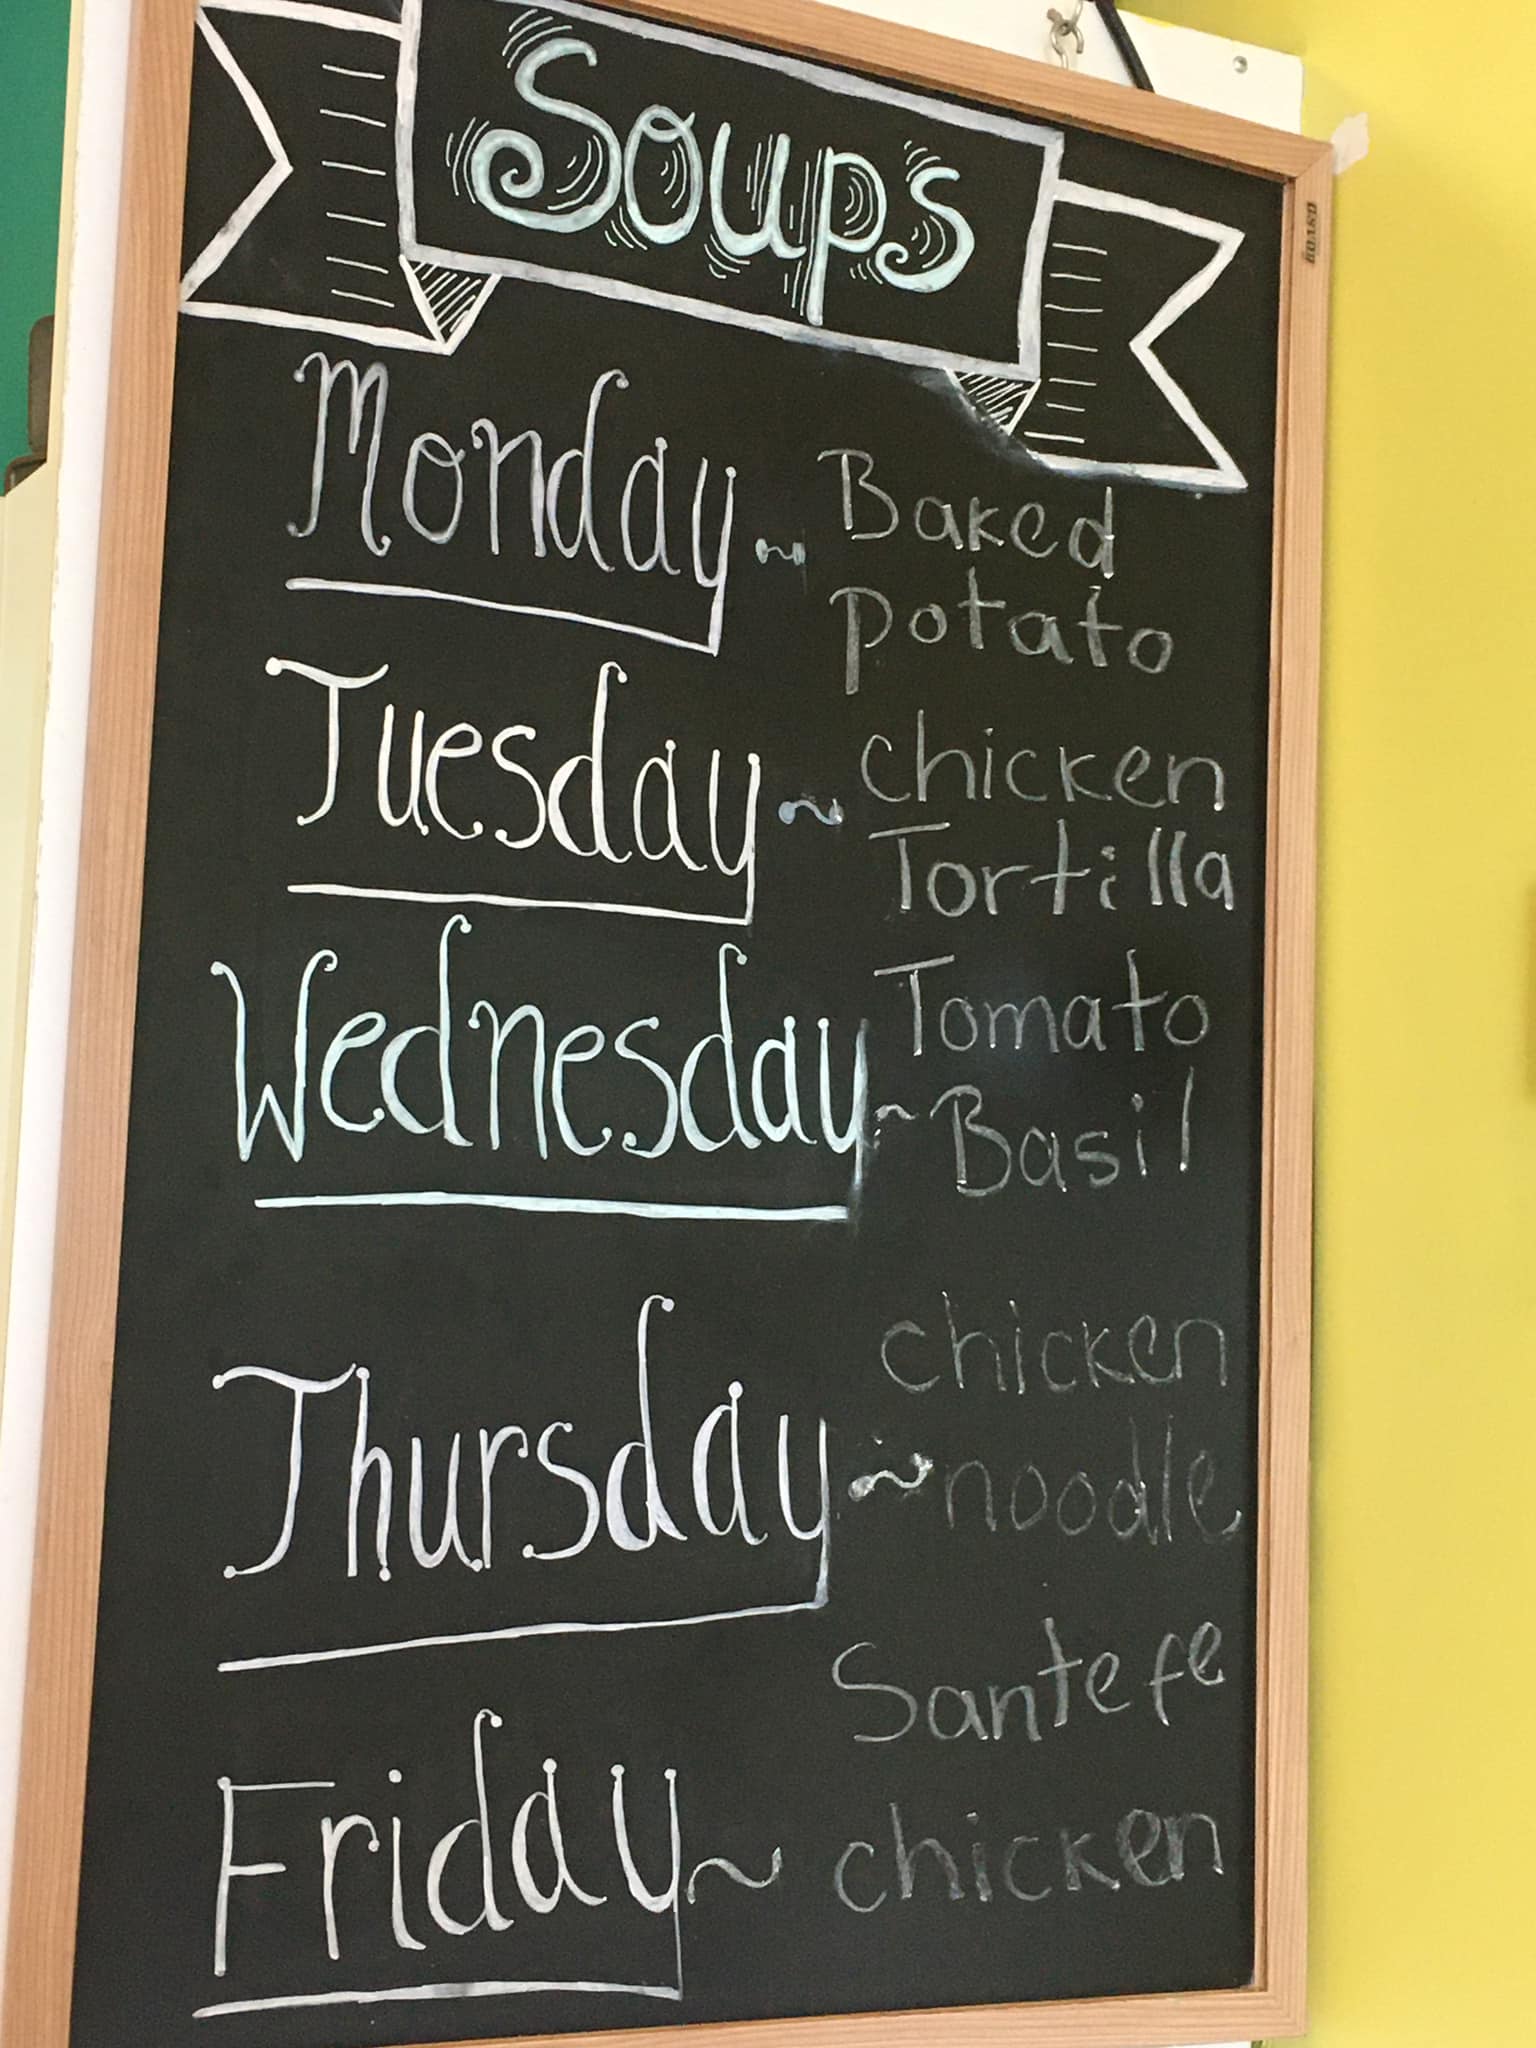 Soups
Monday ~ Baked
potato
Tuesday ~ chicken
Tortilla
Tomato
Wednesday ~ Basil
chicken
Thursday ~ noodle
Santefe
Friday ~ chicken
BOARD